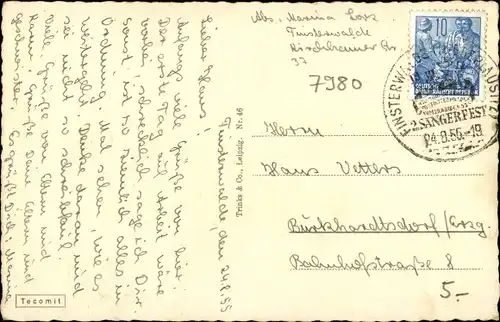 Finsterwalde, den 24.8.55
Lieber Hans!
Anfangs viele Grüße von hier.
Der erste Tag mit Arbeit wäre
vorbei, schrecklich sage ich Dir.
Sonst ist so ziemlich alles in
Ordnung. Mal sehen, wie es
weitergeht. Denke daran und
sei nicht so schreibfaul.
Viele Grüße von Eltern und
Hanni grüße Deine Eltern und
Geschwister. Es grüßt Dich, Marina
Tecomit
Trinks & Co., Leipzig. Nr. 46
Abs. Marina Lorz
Finsterwalde
Kirchhainer Str.
37
7980
10
DEUTSCHE DEMOKRATISCHE REPUBLIK
FINSTERWALDE
SÄNGERFEST
24.8.55.-19
Herrn
Hans Vetters
Burkhardtsdorf/Erzg.
Bahnhofstraße 8
5.-